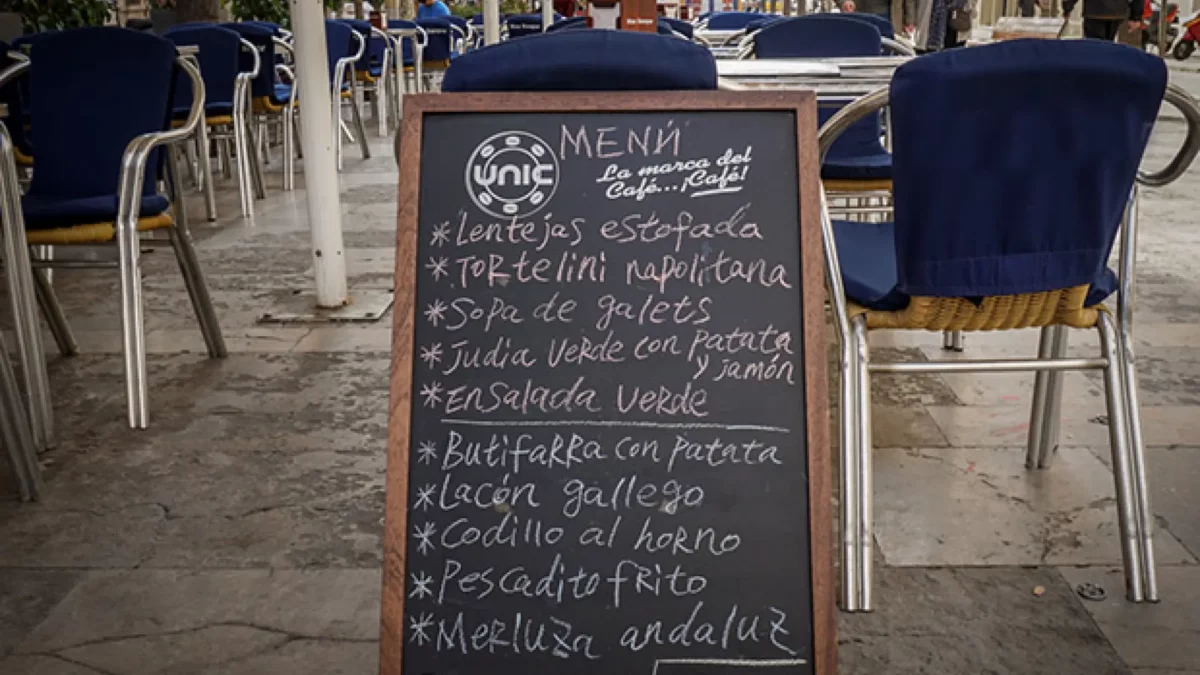 MENÚ
UNIC
La marca del
Café...¡Café!
*Lentejas estofada
*Tortelini napolitana
*Sopa de galets
*Judia verde con patata
y jamón
*Ensalada verde
*Butifarra con patata
*Lacón gallego
*Codillo al horno
*Pescadito frito
*Merluza andaluz